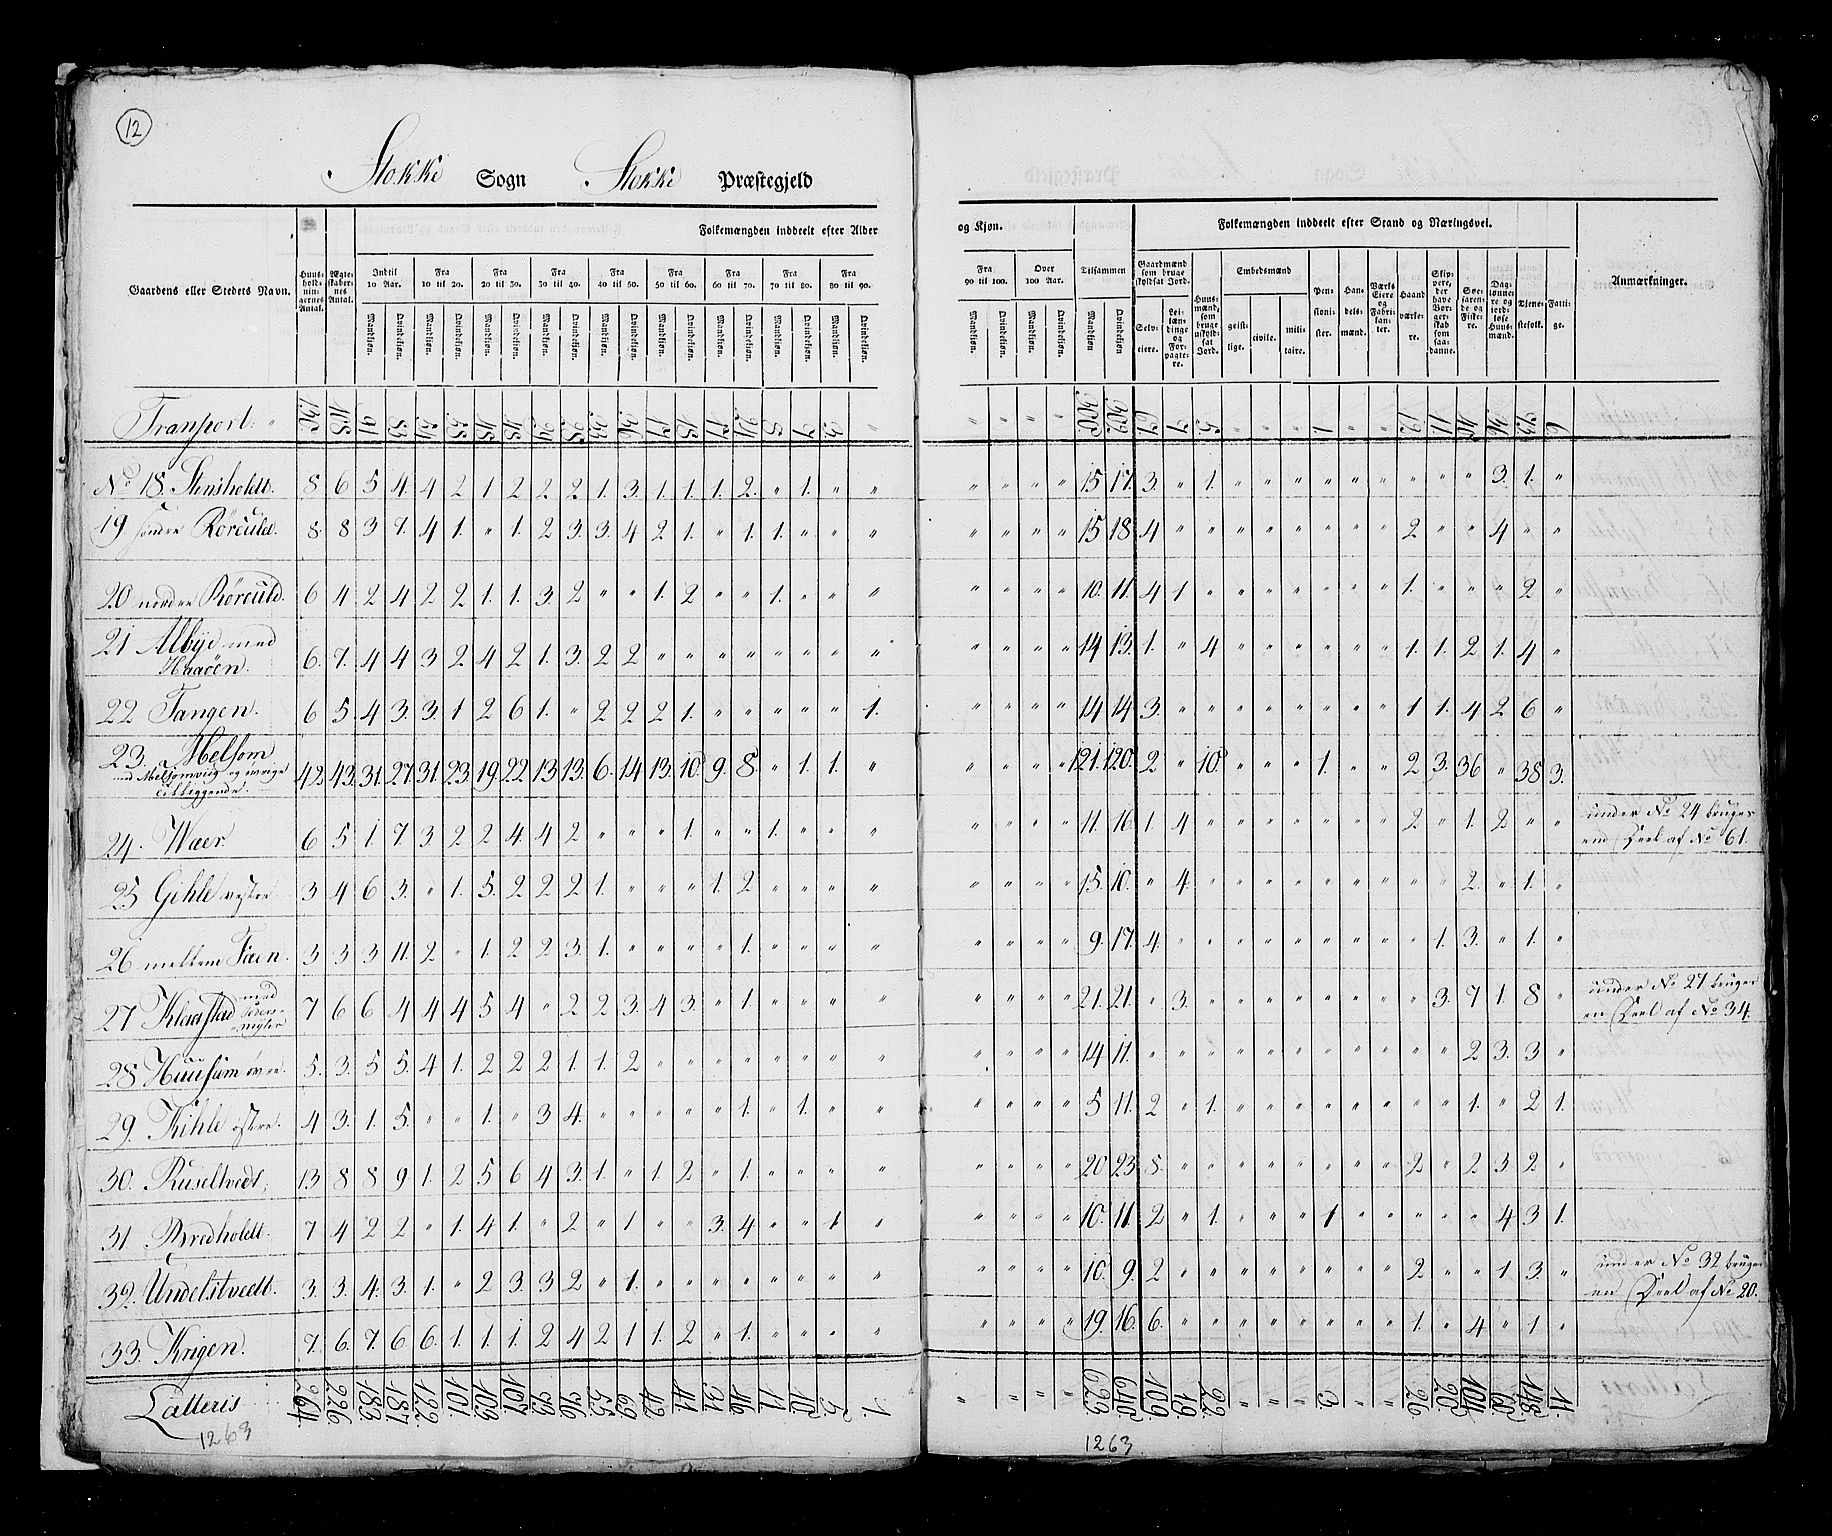 12
Stokke Sogn Stokke Præstegjeld
Gaardens eller Stedets Navn. | Huus-holdnin-gernes Antal. | Ægte-skaber-nes Antal. | Folkemængden inddeelt efter Alder og Kjøn. | Tilsammen | Folkemængden inddeelt efter Stand og Næringsvei. | Anmærkninger.
Indtil 10 Aar. | Fra 10 til 20. | Fra 20 til 30. | Fra 30 til 40. | Fra 40 til 50. | Fra 50 til 60. | Fra 60 til 70. | Fra 70 til 80. | Fra 80 til 90. | Fra 90 til 100. | Over 100 Aar.
Mandkjøn. | Qvindekjøn.
Gaardmænd som bruge skyldsat Jord. | Selveiere. | Leilændinge og Forpagtere. | Huusmænd, som bruge uskyldsat Jord. | Embedsmænd | geistlige. | civile. | militaire. | Pensionister. | Handelsmænd. | Værks Eiere og Fabrikanter. | Haandværkere. | Skippere, der have Borgerskab som saadanne. | Søefarende og Fiskere. | Daglønnere og jordløse Huusmænd. | Tjenestefolk. | Fattige.
Transport
No 18. Stensholdt. 8 6 5 4. 4 2 1 2 2 2 1. 3. 1. 1. 1. 2. " 1. " " " " " " 15 17. 3. " 1. " " " " " " " " " 3. 1. "
19 søndre Rørcüld. 8. 8 3 7. 4 1. " 1. 2 3. 3. 4 2 1. " 1. 1. " " " " " " " 15 18 4 " " " " " " " " 2 " " 4 " "
20 nordre Rørcüld. 6 4 2 4 2 2 1. 1. 3. 2 " " 1. 2 " " 1. " " " " " " " 10. 11. 4 1 " " " " " " " 1. " " " 2 "
21 Albÿe med Haaöen. 6. 7. 4 4 3 2 4 2 1. 3. 2 2 " " " " " " " " " " " " 14 13. 1. " 4 " " " " " " 1. 1. 2 1. 4 "
22 Tangen. 6 5. 4 3. 3. 1 2 6 1. " 2 2 2 1. " " " " " 1. " " " " 14 14 3. " " " " " " " " 1 1. 4 2 6 "
23. Melsom med Melsomvug og øvrige tilliggende. 42. 43. 31. 27. 31. 23. 19. 22 13. 13. 6. 14 13. 10. 9. 8. " 1. 1. " " " " " 121. 120. 2 " 10. " " " 1. " " 2 3. 36 " 38 3.
24. Waer. 6 5 1. 7. 3. 2 2 4. 4 2 " " " 1. " " 1. " " " " " " " 11. 16 1. 4 " " " " " " " 2 " 1. 2 " " under No 24 bruges en Deel af No 61.
25 Gihle vestre 3 4 6 3. " 1. 5. 2 2 2 1. " " " 1. 2 " " " " " " " " 15. 10. " 4. " " " " " " " " " 2. " 1. "
26 mellem Føen. 3 3 3 11. 2 " 1. 2 2 3. 1. " " " " 1. " " " " " " " " 9. 17. 4. " " " " " " " " " 1. 3. " 1. "
27 Klaastad med 7 6 6 4 4 4 5 4 " 2 2 3. 4 3. " 1. " " " " " " " " 21. 21. " 3. " " " " " " " " 3. 7 1. 8 " under No 27 bruges en Deel af No 34.
28 Hüüsüm øvre. 5. 3. 5 5. 4 1. 2 2 2 1. 1. 2 " " " " " " " " " " " " 14 11. " " " " " " " " " " " 2 3. 3 "
29. Kihle østre. 4 3. 1. 5. " " 1. " 3 4. " " " " " 1. " 1. " " " " " " 5 11. 2 " 1. " " " " " " " " 1. " 2 1.
30. Rüseltvedt, 13 8 8 9. 1. 2 5 6 4 3. 1. " 1. 2 " 1. " " " " " " " " 20 23 8. " " " " " " " " 2 " 2 3 2 "
31. Bredholdt. 7 4 2 2 " 1. 4 1. " 2 " 1 " " 3. 4 " " 1 " " " " " 10. 11. 2 " 1. " " " 1 " " " " " 4 3 1.
32. Undelstvedt. 3. 3. 4. 3. 1. " 2 3. 3 2 " 1. " " " " " " " " " " " " 10. 9. 2 " " " " " " " " 2 " " 1 3. " under No 32 bruges en Deel af No 20.
33. Krigen. 7. 6. 7. 6 6. 1. 1. 1. 2 4 2 1 1. 2 " 1. " " " " " " " " 19. 16. 6. " " " " " " " " 1. " 4 " 1 "
Latteris 264. 226 183. 187 122. 101. 103 107. 73. 76. 55. 69. 42 41 31 46. 11 10. 5. 1. " " " " 623. 640. 109 19. 22. " " " 3. " " 26 20. 104. 60. 148. 11.
1263
1263